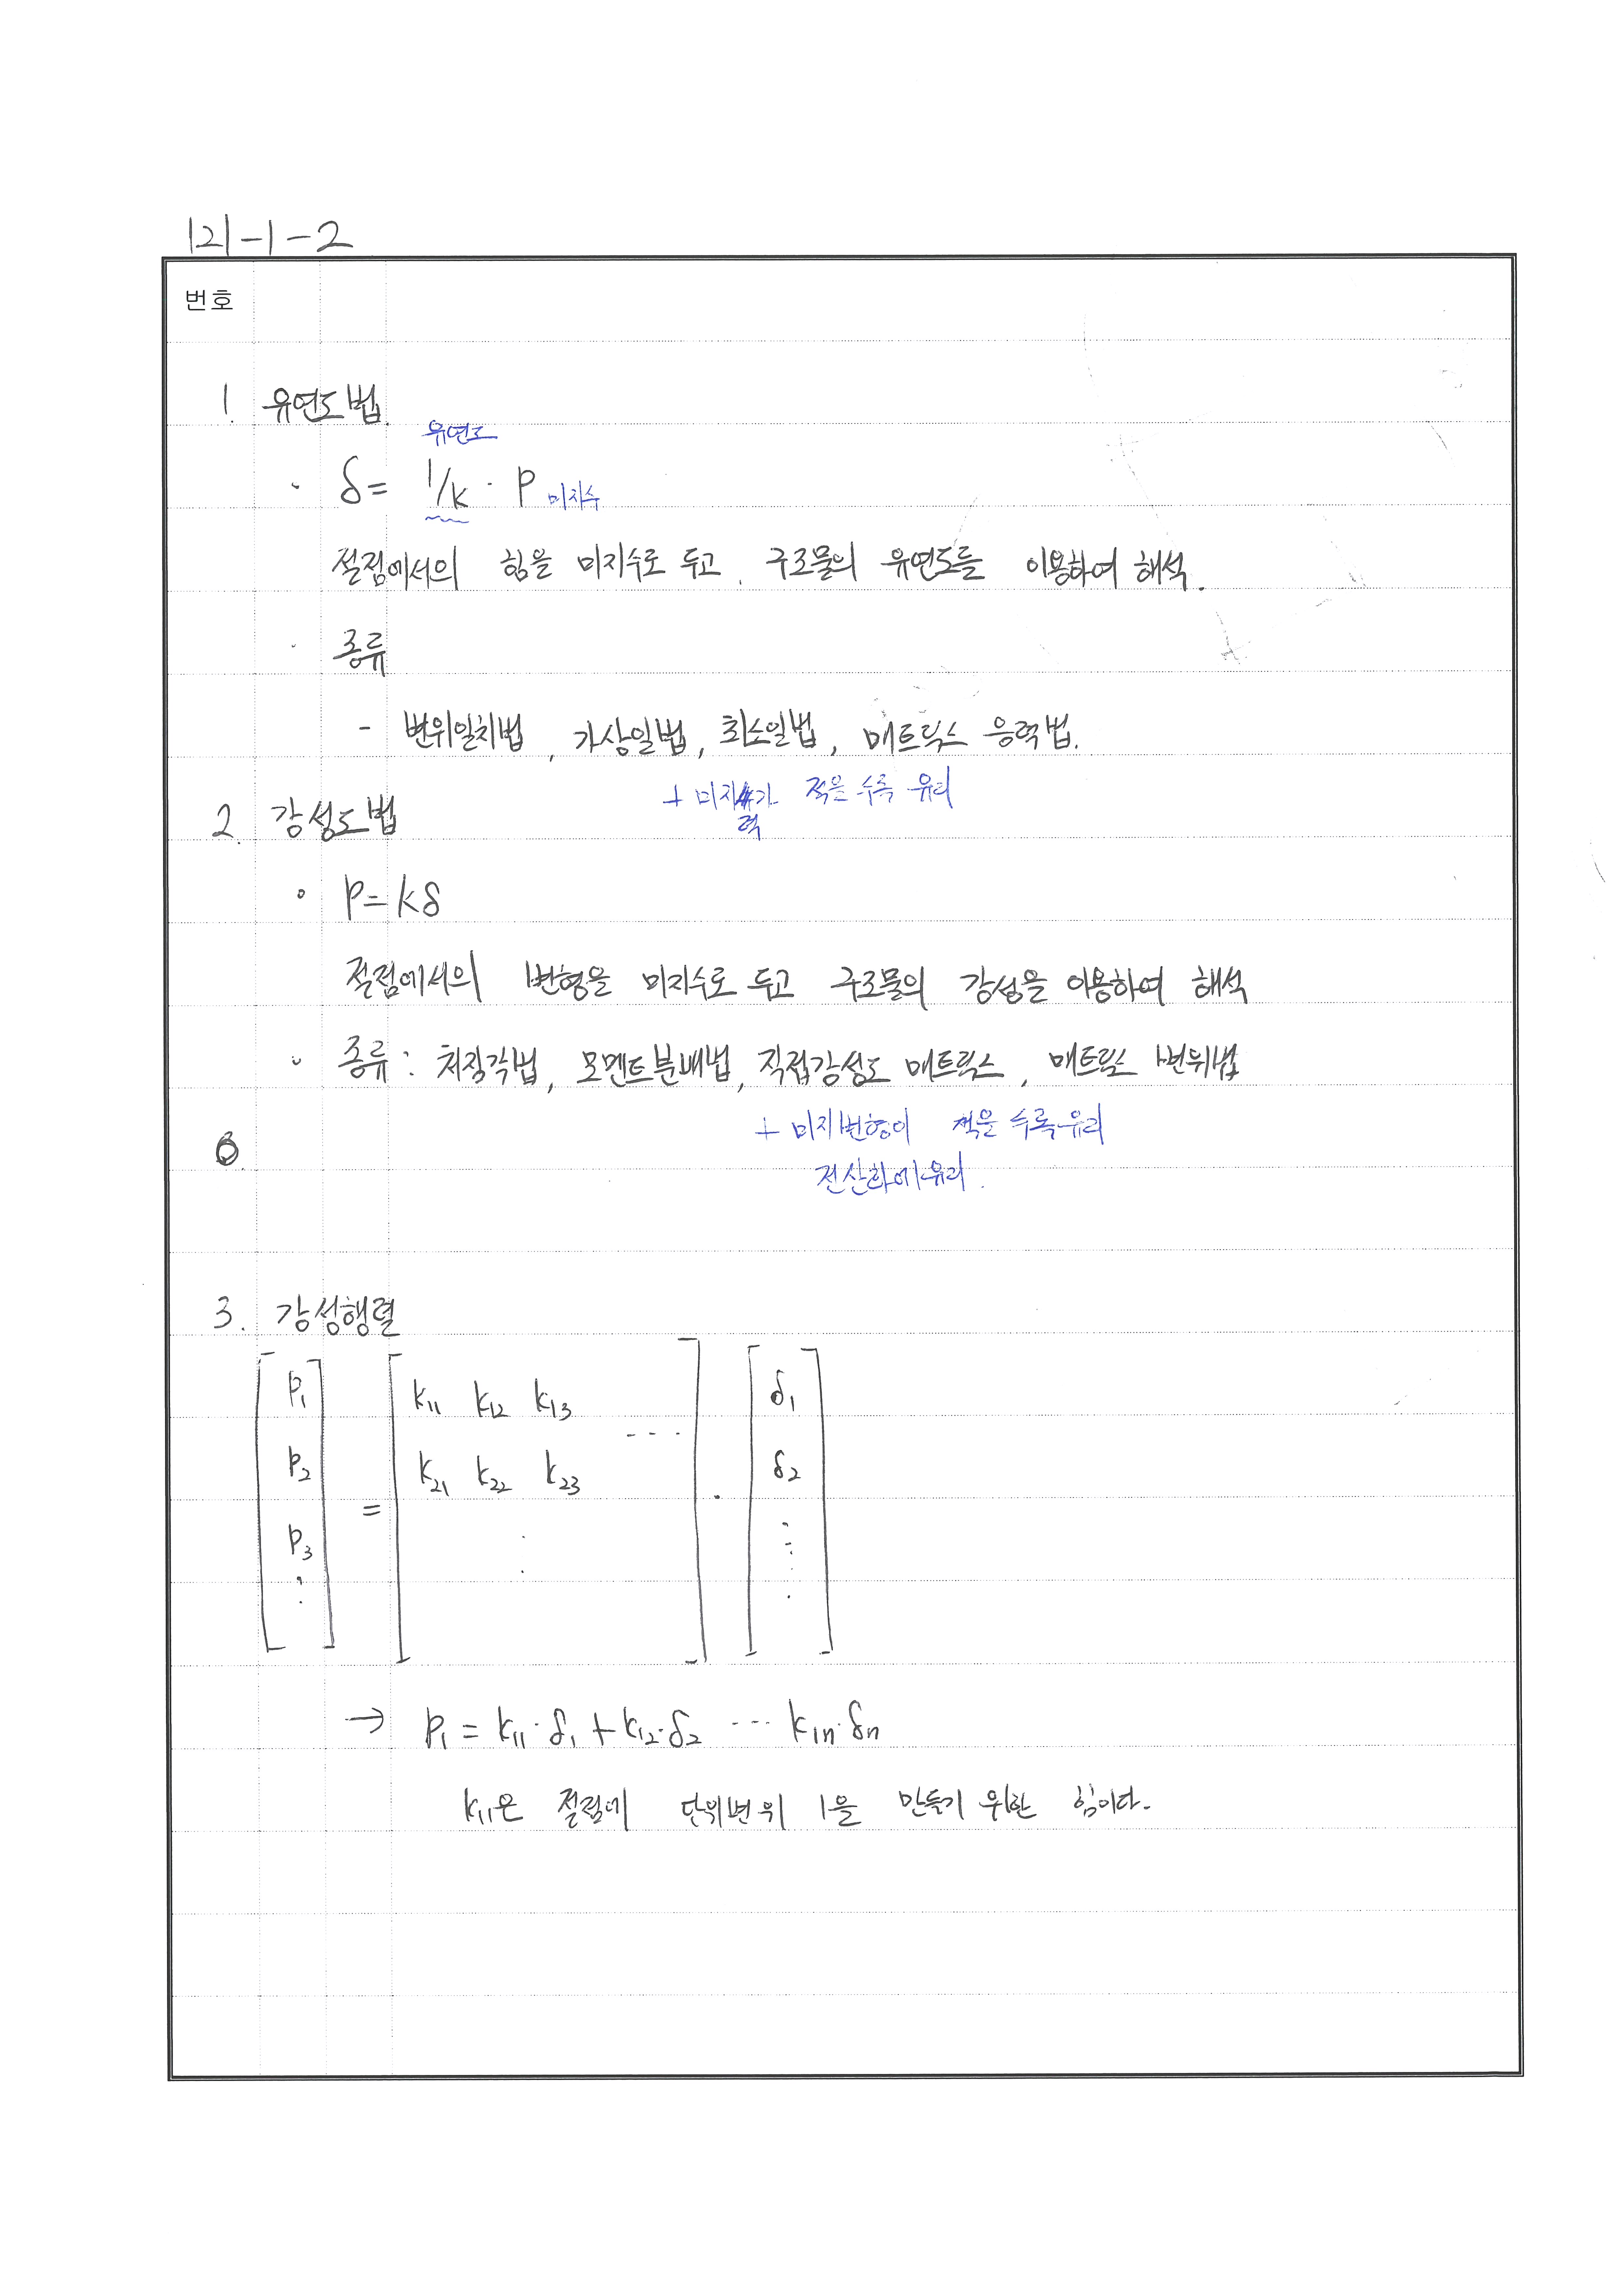 121-1-2
번호
1. 유연도법.
유연도
· δ = 1/k · P 미지수
절점에서의 힘을 미지수로 두고, 구조물의 유연도를 이용하여 해석.
· 종류
- 변위일치법, 가상일법, 최소일법, 매트릭스 응력법.
+ 미지력가 적을 수록 유리
2. 강성도법
· P = kδ
절점에서의 변형을 미지수로 두고 구조물의 강성을 이용하여 해석
· 종류 : 처짐각법, 모멘트분배법, 직접강성도 매트릭스, 매트릭스 변위법
+ 미지변형이 적을 수록 유리
전산화에 유리.
3. 강성행렬
[P1 P2 P3 ⋮] = [k11 k12 k13 --- k21 k22 k23 ⋮] · [δ1 δ2 ⋮]
→ P1 = k11·δ1 + k12·δ2 ··· k1n·δn
k11은 절점에 단위변위 1을 만들기 위한 힘이다.